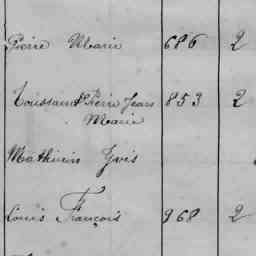 Pierre Marie 686 2
Toussaint Pierre Jean 853 2
Marie
Mathurin Yves
Louis François 968 2